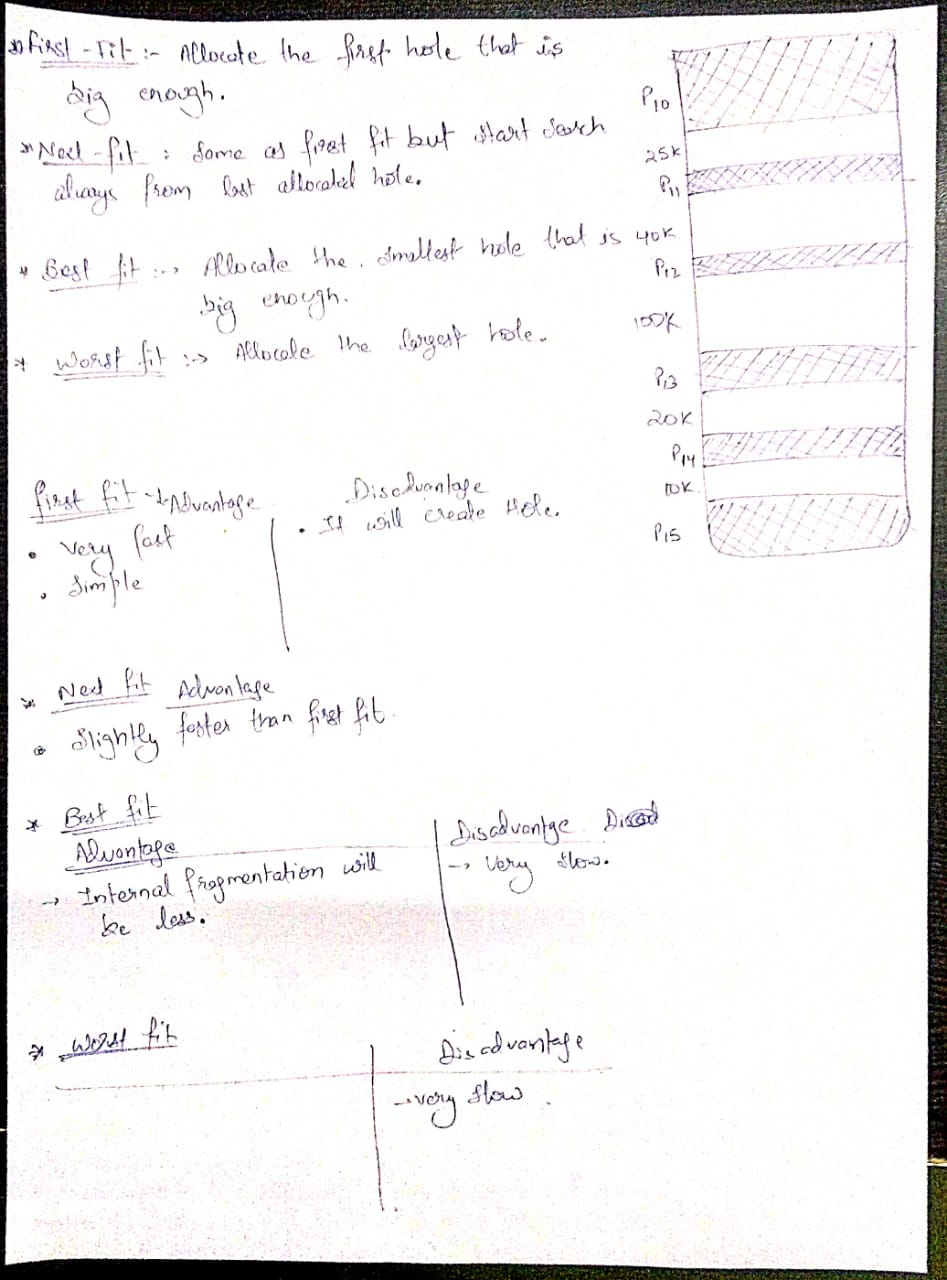 * First-Fit :- Allocate the first hole that is
big enough.
* Next-fit : Same as first fit but start search
always from last allocated hole.
* Best fit :→ Allocate the smallest hole that is
big enough.
* Worst fit :→ Allocate the largest hole.
P10
25K
P11
40K
P12
100K
P13
20K
P14
10K
P15
First fit → Advantage
• Very fast
• Simple
Disadvantage
• It will create Hole.
* Next fit Advantage
• Slightly faster than first fit.
* Best fit
Advantage
→ Internal fragmentation will
be less.
Disadvantge
→ Very slow.
* Worst fit
Disadvantage
→ very slow.